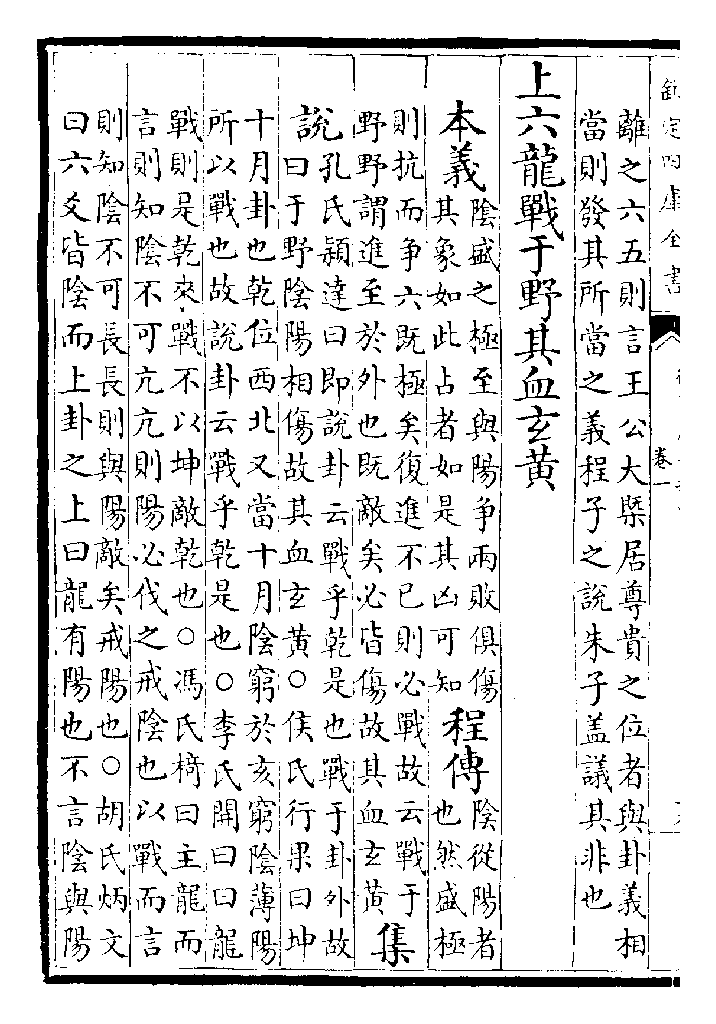 欽定四庫全書
卷一
離之六五則言王公大槩居尊貴之位者與卦義相
當則發其所當之義程子之說朱子盖議其非也
上六龍戰于野其血玄黄
本義
陰盛之極至與陽争兩敗俱傷
其象如此占者如是其凶可知
程傳
陰從陽者
也然盛極
則抗而争六既極矣復進不已則必戰故云戰于
野野謂進至於外也既敵矣必皆傷故其血玄黄
集
說
孔氏穎達曰即說卦云戰乎乾是也戰于卦外故
曰于野陰陽相傷故其血玄黄○侯氏行果曰坤
十月卦也乾位西北又當十月陰窮於亥窮陰薄陽
所以戰也故說卦云戰乎乾是也○李氏開曰曰龍
戰則是乾來戰不以坤敵乾也○馮氏椅曰主龍而
言則知陰不可亢亢則陽必伐之戒陰也以戰而言
則知陰不可長長則與陽敵矣戒陽也○胡氏炳文
曰六爻皆陰而上卦之上曰龍有陽也不言陰與陽